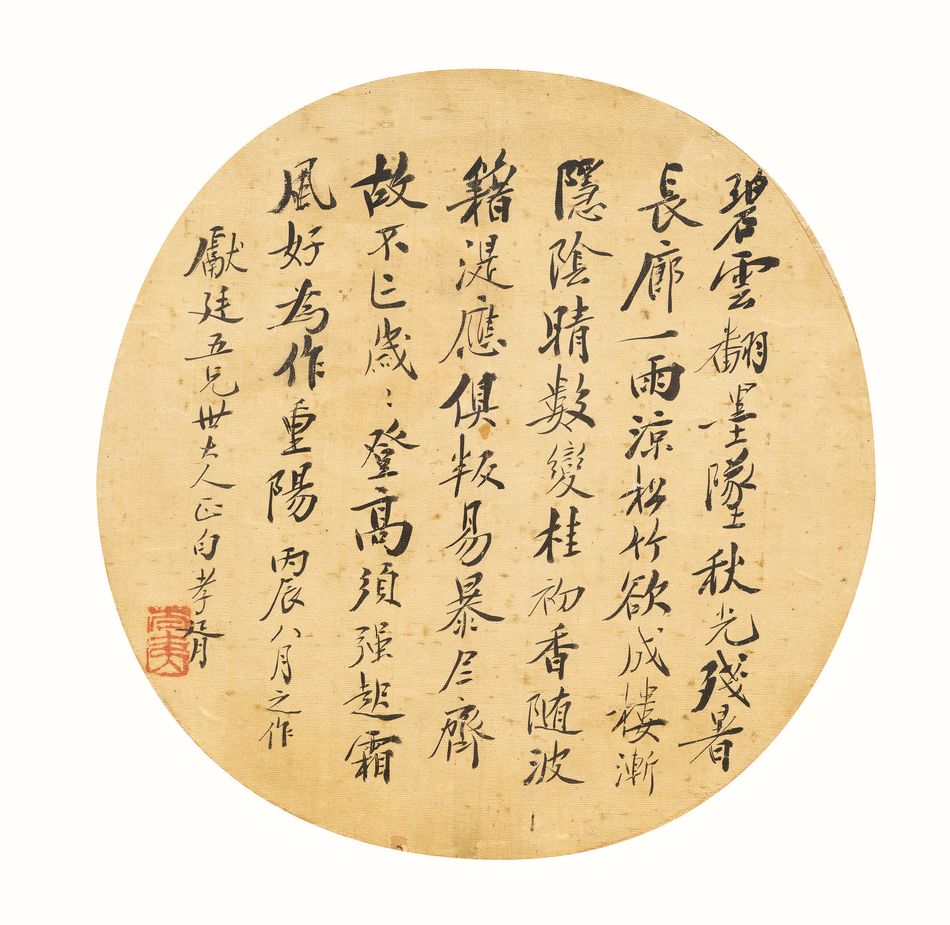 碧雲翻墨墜秋光殘暑
長廊一雨涼松竹欲成樓漸
隱陰晴數變桂初香随波
籍湜應俱叛易暴𡰥齊
故不亡歲〻登高須强起霜
風好為作重陽 丙辰八月之作
獻廷五兄世大人正句孝胥